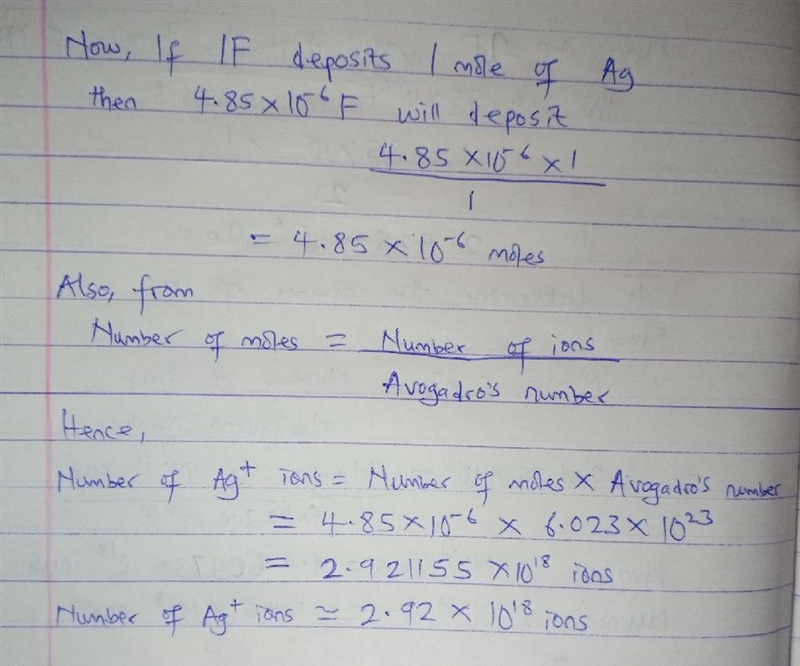 Now, If 1F deposits 1 mole of Ag
then 4.85 × 10⁻⁶ F will deposit
4.85 × 10⁻⁶ × 1
1
= 4.85 × 10⁻⁶ moles
Also, from
Number of moles = Number of ions
Avogadro's number
Hence,
Number of Ag⁺ ions = Number of moles × Avogadro's number
= 4.85 × 10⁻⁶ × 6.023 × 10²³
= 2.921155 × 10¹⁸ ions
Number of Ag⁺ ions ≃ 2.92 × 10¹⁸ ions